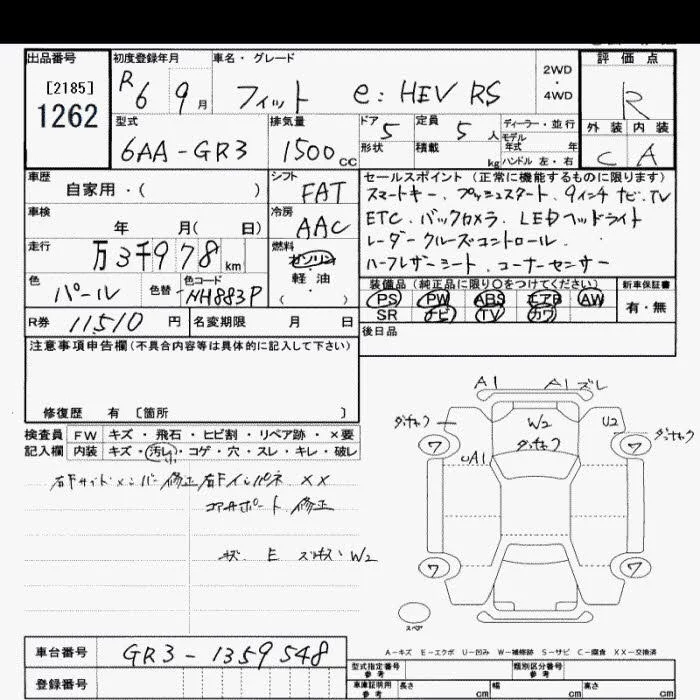 出品番号 初度登録年月 車名・グレード 2WD・4WD 評価点
[2185] 1262 R6 9月 フィット e:HEV RS R
型式 排気量 ドア 5 定員 5人 ディーラー・並行 外装 内装
6AA-GR3 1500cc 形状 積載 kg モデル年式 年 ハンドル 左・右 C A
車歴 自家用・( ) シフト FAT セールスポイント(正常に機能するものに限ります)
スマートキー、プッシュスタート、9インチナビ、TV
車検 年 月( 日) 冷房 AAC ETC、バックカメラ、LEDヘッドライト
走行 万3千978km 燃料 ガソリン・軽油・( ) レーダークルーズコントロール
ハーフレザーシート、コーナーセンサー
色 パール 色替 色コード NH883P 装備品(純正品に限り○をつけてください) 新車保証書
PS PW ABS エアB AW 有・無
R券 11,510円 名変期限 月 日 SR ナビ TV カワ
後日品
注意事項申告欄(不具合内容等は具体的に記入して下さい)
修復歴 有 〔箇所 〕
検査員 FW キズ・飛石・ヒビ割・リペア跡・×要
記入欄 内装 キズ・汚レ・コゲ・穴・スレ・キレ・破レ
右Fサイドメンバー修正 右Fインパネ XX
コアサポート修正
E W2
A1 A1ズレ
W2 U2
ダッチャク ダッチャク ダッチャク
ワ ワ
UA1
ワ ワ
スペア
A-キズ E-エクボ U-凹み W-補修跡 S-サビ C-腐食 XX-交換済
車台番号 GR3-1359548 型式指定番号 参考 類別区分番号 参考
登録番号 車庫証明用 参考 長さ cm 幅 cm 高さ cm